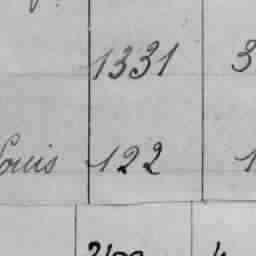 1331 3
Louis 122 1